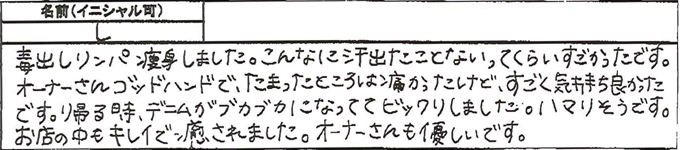 名前(イニシャル可)
L
毒出しリンパン痩身しました。こんなに汗出たことないってくらいすごかったです。
オーナーさんゴッドハンドで、たまったところは痛かったけど、すごく気持ち良かった
です。帰る時、デニムがブカブカになっててビックリしました。ハマりそうです。
お店の中もキレイで癒されました。オーナーさんも優しいです。